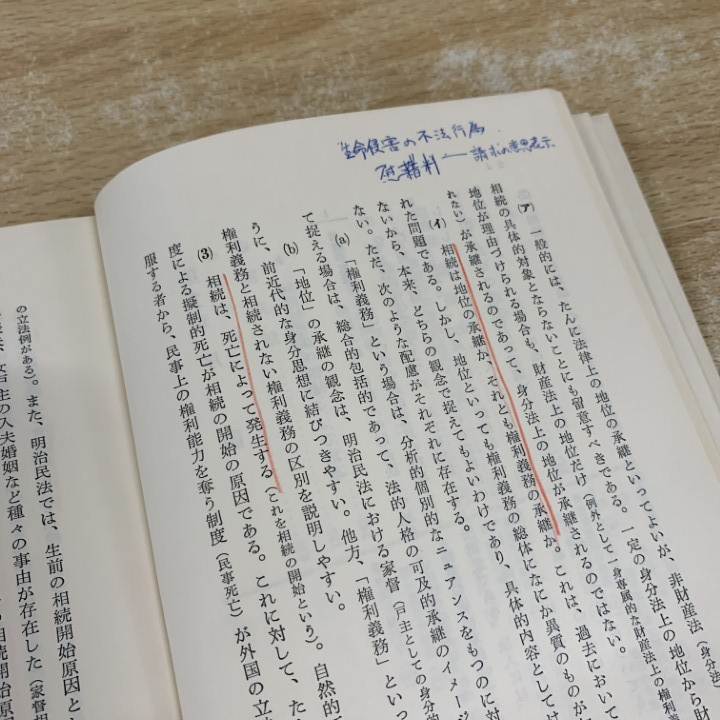 生命侵害の不法行為
慰藉料 ― 請求の意思表示
(ア) 一般的には、たんに法律上の地位の承継といってよいが、非財産法(身分法
相続の具体的対象とならないことにも留意すべきである。一定の身分法上の地位から財
地位が理由づけられる場合も、財産法上の地位だけ(例外として一身専属的な財産法上の権利
れない)が承継されるのであって、身分法上の地位が承継されるのではない。
(イ) 相続は地位の承継か、それとも権利義務の承継か。これは、過去において
れた問題である。しかし、地位といっても権利義務の総体になにか異質のものが
ないから、本来、どちらの観念で捉えてもよいわけであり、具体的内容としては
ない。ただ、次のような配慮がそれぞれに存在する。
(a) 「権利義務」という場合は、分析的個別的なニュアンスをもつのに対
て捉える場合は、総合的包括的であって、法的人格の可及的承継のイメージ
(b) 「地位」の承継の観念は、明治民法における家督(戸主としての身分的
うに、前近代的な身分思想に結びつきやすい。他方、「権利義務」といっ
権利義務と相続されない権利義務の区別を説明しやすい。
(3) 相続は、死亡によって発生する(これを相続の開始という)。自然的
度による擬制的死亡が相続の開始の原因である。これに対して、た
服する者から、民事上の権利能力を奪う制度(民事死亡)が外国の立
の立法例がある)。また、明治民法では、生前の相続開始原因と
主の入夫婚姻など種々の事由が存在した(家督相